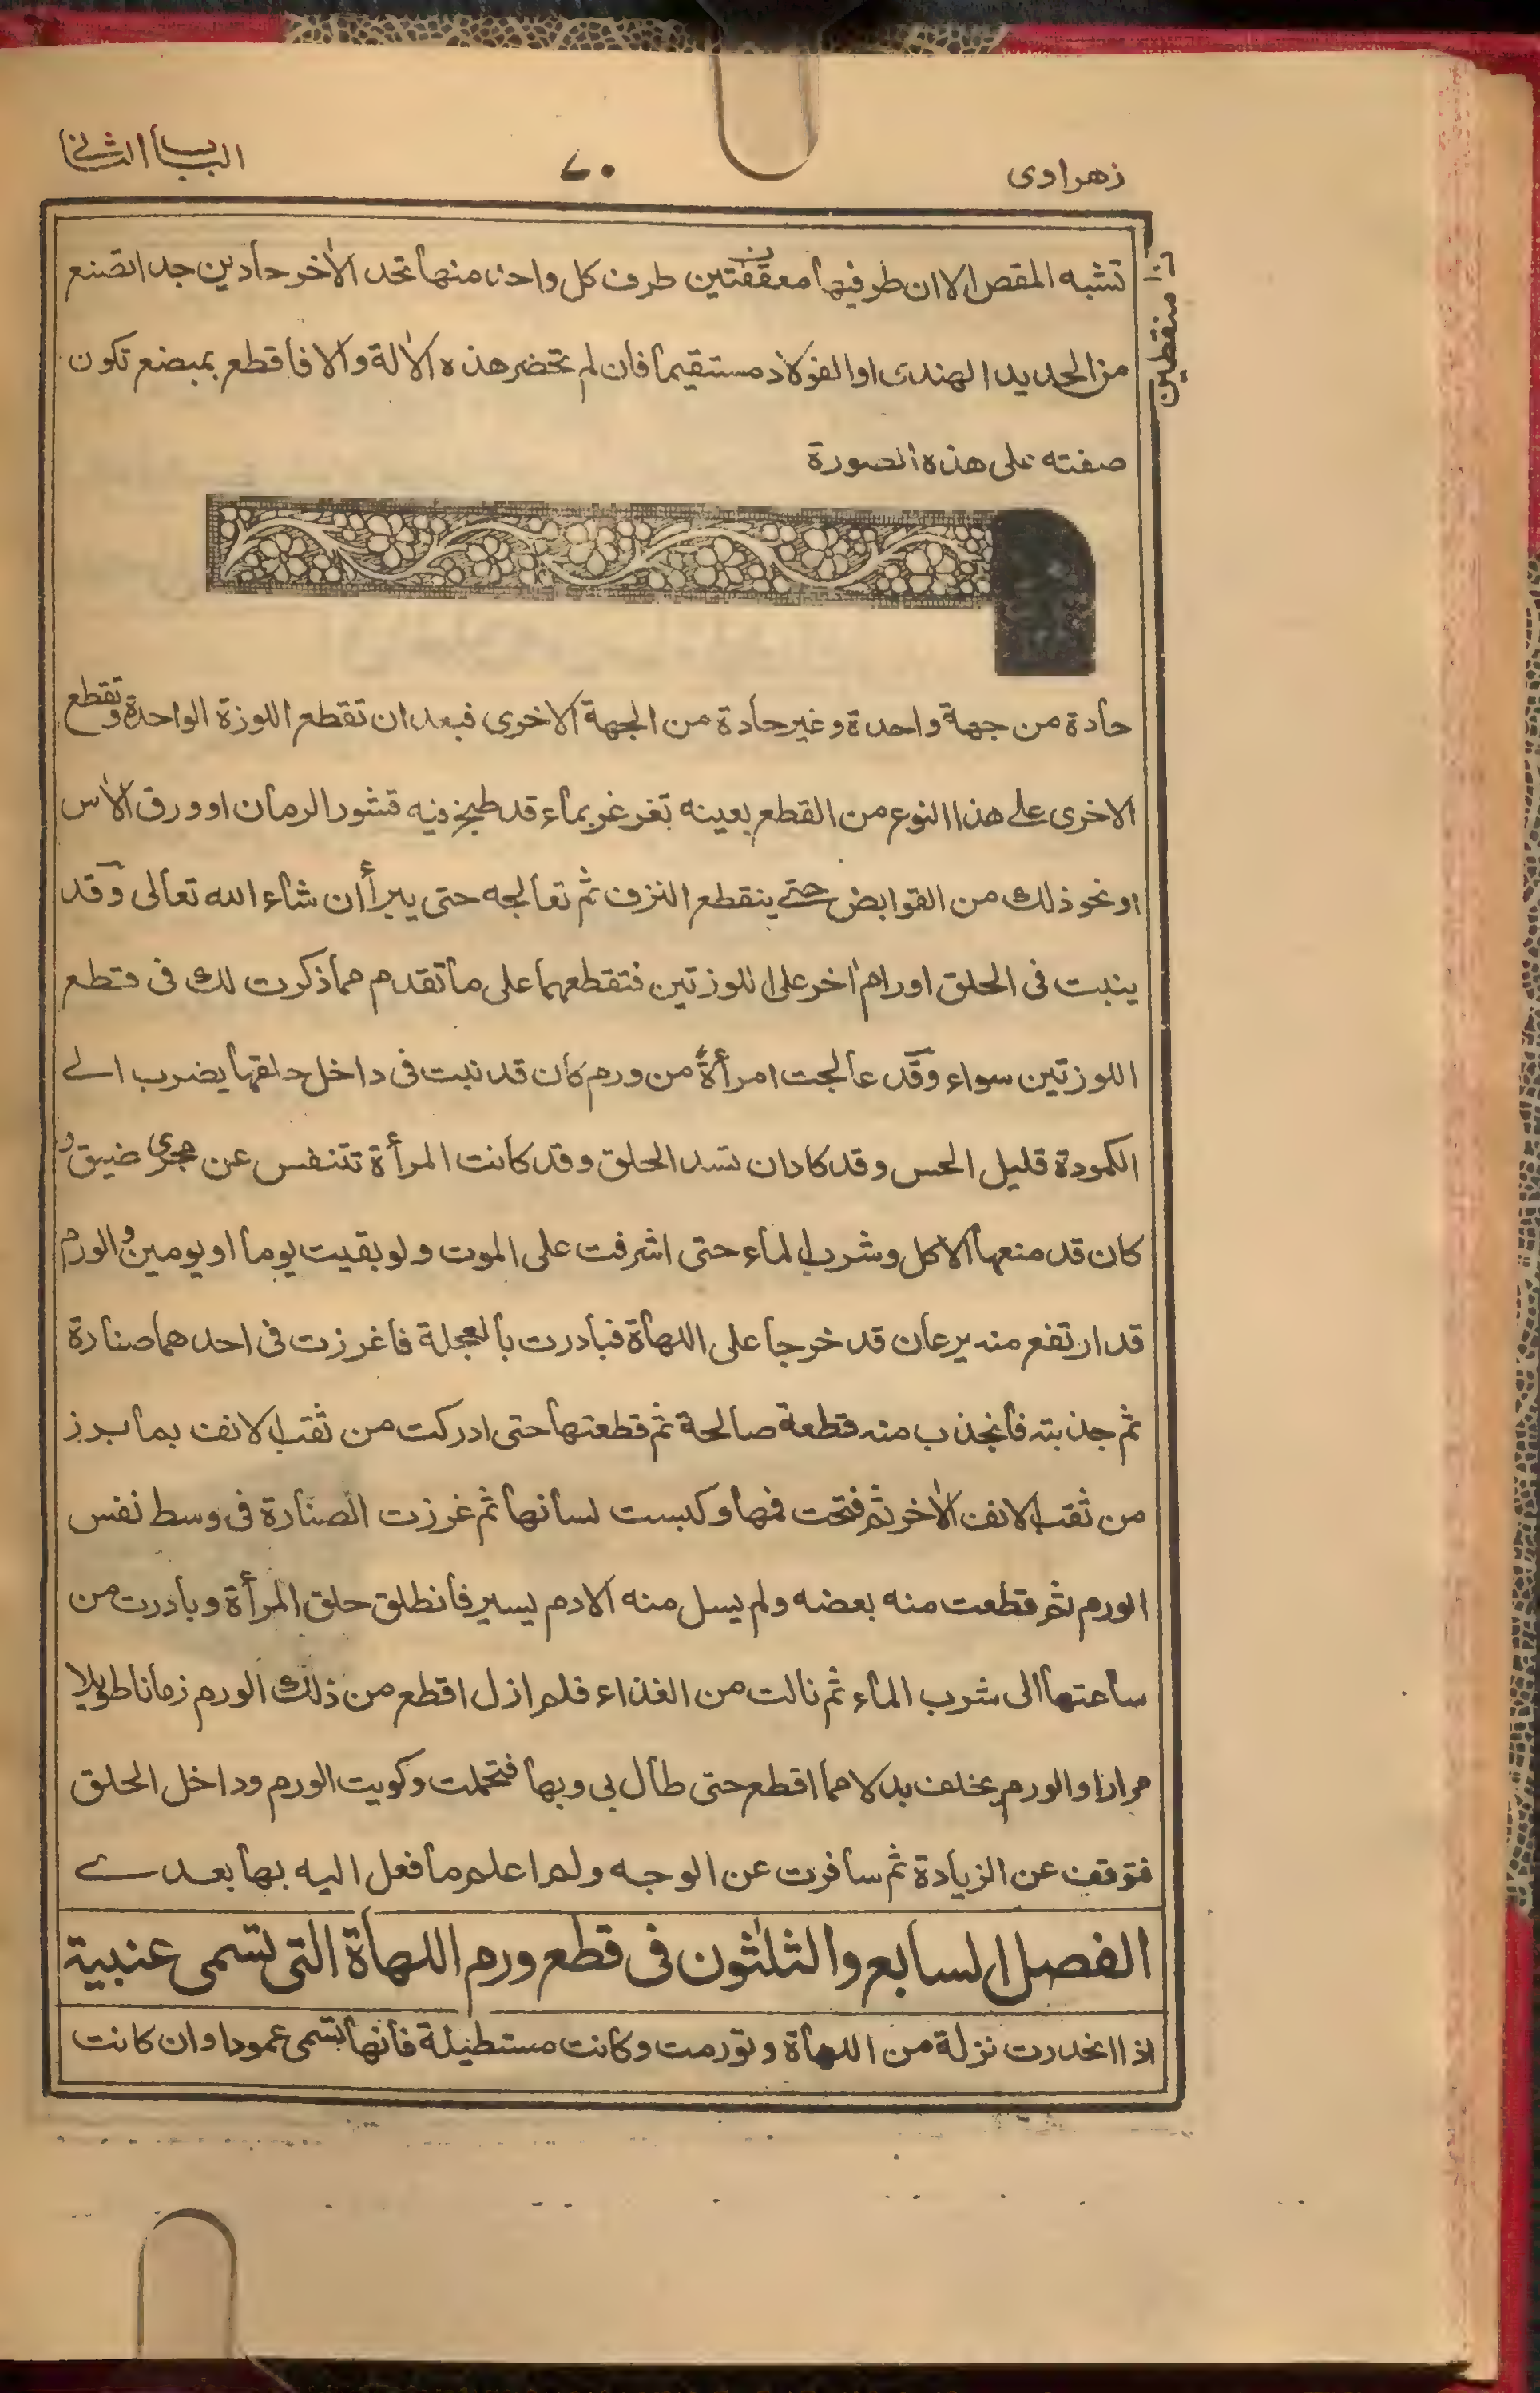 زهراوى
٧٠
الباب الثانى
تشبه المقص الا ان طرفيها معقفتين طرف كل واحد منها تحد الاٰخر حادين جدا تصنع
منقطين
من الحديد الهندى او الفولاذ مستقيما فان لم تحضر هذه الاٰلة والا فاقطع بمبضع تكون
صفته على هذه الصورة
حادة من جهة واحدة وغير حادة من الجهة الاخرى فبعد ان تقطع اللوزة الواحدة وتقطع
الاخرى على هذا النوع من القطع بعينه تغرغر بماء قد طبخ فيه قشور الرمان او ورق الاٰس
او نحو ذلك من القوابض حتى ينقطع النزف ثم تعالجه حتى يبرأ ان شاء الله تعالى وقد
ينبت فى الحلق اورام اٰخر على اللوزتين فتقطعهما على ما تقدم مما ذكرت لك فى قطع
اللوزتين سواء وقد عالجت امرأةً من ورم كان قد نبت فى داخل حلقها يضرب الى
الكمودة قليل الحس وقد كاد ان تسد الحلق وقد كانت المرأة تتنفس عن مجرى ضيق و
كان قد منعها الاكل وشرب الماء حتى اشرفت على الموت ولو بقيت يوما او يومين والورم
قد ارتفع منه يرعان قد خرجا على اللهاة فبادرت بالعجلة فاغرزت فى احدهما صنارة
ثم جذبته فانجذب منه قطعة صالحة ثم قطعتها حتى ادركت من ثقب الانف بما برز
من ثقب الانف الاٰخر ثم فتحت فمها وكبست لسانها ثم غرزت الصنارة فى وسط نفس
الورم ثم قطعت منه بعضه ولم يسل منه الا دم يسير فانطلق حلق المرأة وبادرت من
ساعتها الى شرب الماء ثم نالت من الغذاء فلم ازل اقطع من ذلك الورم زمانا طويلا
مرارا والورم يخلف بدلا مما اقطع حتى طال بى وبها فتحملت وكويت الورم وداخل الحلق
فتوقف عن الزيادة ثم سافرت عن الوجه ولم اعلم ما فعل اليه بها بعدى
الفصل السابع والثلٰثون فى قطع ورم اللهاة التى تسمى عنبية
اذا انحدرت نزلة من اللهاة وتورمت وكانت مستطيلة فانها تسمى عمودا وان كانت